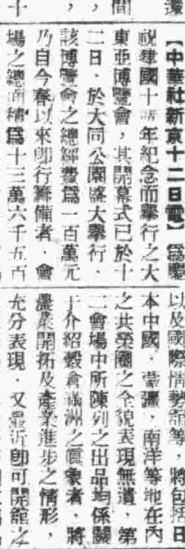 【中華社新京十二日電】爲慶
祝建國十週年紀念而擧行之大
東亞博覽會，其開幕式已於十
二日，於大同公園盛大擧行
該博覽會之總經費爲一百萬元
乃自今春以來卽行籌備者，會
場之總面積爲十三萬六千五百
以及國際情勢館等，將包括日
本中國，蒙疆，南洋等地在內
之共榮圈之全貌表現無遺，第
二會場中所陳列之出品均係關
于介紹穀倉滿洲之眞象者，將
農業開拓及產業進步之情形，
充分表現，又最近卽可開館之